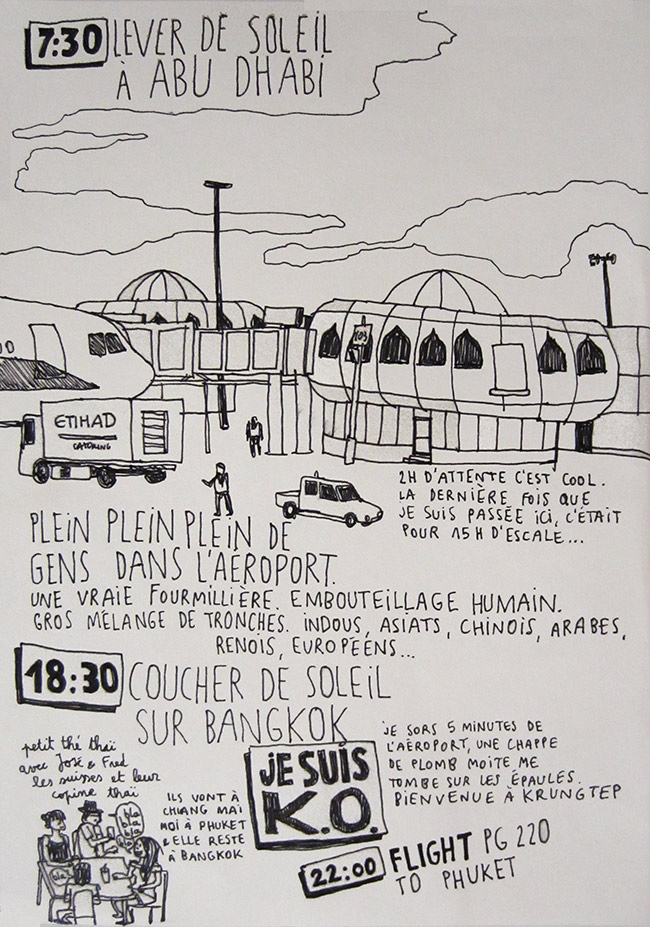 7:30 LEVER DE SOLEIL
À ABU DHABI
109
ETIHAD
CATERING
2H D'ATTENTE C'EST COOL.
LA DERNIÈRE FOIS QUE
JE SUIS PASSÉE ICI, C'ÉTAIT
POUR 15H D'ESCALE...
PLEIN PLEIN PLEIN DE
GENS DANS L'AÉROPORT.
UNE VRAIE FOURMILLIÈRE. EMBOUTEILLAGE HUMAIN.
GROS MÉLANGE DE TRONCHES. INDOUS, ASIATS, CHINOIS, ARABES,
RENOIS, EUROPÉENS...
18:30 COUCHER DE SOLEIL
SUR BANGKOK
petit thé thaï
avec José & Fred
les suisses et leur
copine thaï
bla
bla
bla
ILS VONT À
CHIANG MAÏ
MOI À PHUKET
& ELLE RESTE
À BANGKOK
JE SUIS
K.O.
JE SORS 5 MINUTES DE
L'AÉROPORT, UNE CHAPPE
DE PLOMB MOITE ME
TOMBE SUR LES ÉPAULES.
BIENVENUE À KRUNGTEP
22:00 FLIGHT PG 220
TO PHUKET